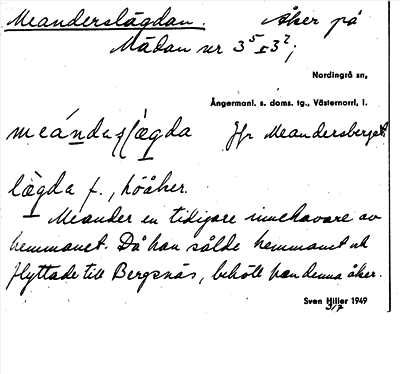 Meanderslägdan. Åker på
Mädan nr 3⁵ o 3²;
Nordingrå sn,
Ångermanl. s. doms. tg., Västernorrl, l.
meándeṣḷægda Jfr Meandersberget.
lægda f., höåker.
Meander en tidigare innehavare av
hemmanet. Då han sålde hemmanet och
flyttade till Bergsnäs, behöll han denna åker.
Sven Hiller 1949